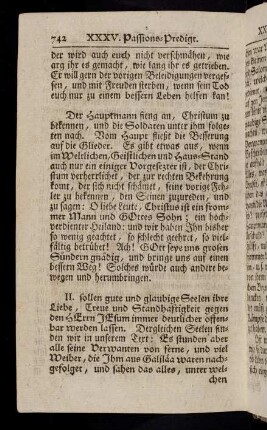 742 XXXV. Passions-Predigt.
der wird auch euch nicht verschmähen, wie
arg ihr es gemacht, wie lang ihr es getrieben.
Er will gern der vorigen Beleidigungen verges-
sen, und mit Freuden sterben, wenn sein Tod
euch nur zu einem bessern Leben helfen kan!
Der Hauptmann fieng an, Christum zu
bekennen, und die Soldaten unter ihm folge-
ten nach. Vom Haupt fliest die Besserung
auf die Glieder. Es gibt etwas aus, wenn
im Weltlichen, Geistlichen und Haus-Stand
auch nur ein einiger Vorgesezter ist, der Chri-
stum verherrlichet, der zur rechten Bekehrung
komt, der sich nicht schämet, seine vorige Feh-
ler zu bekennen, den Seinen zuzureden, und
zu sagen: O liebe Leut, Christus ist ein from-
mer Mann und GOttes Sohn; ein hoch-
verdienter Heiland: und wir haben Ihn bisher
so wenig geachtet, so schlecht geehret, so viel-
fältig betrübet! Ach! GOtt seye uns grossen
Sündern gnädig, und bringe uns auf einen
bessern Weg! Solches würde auch andere be-
wegen und herumbringen.
II. sollen gute und glaubige Seelen ihre
Liebe, Treue und Standhaftigkeit gegen
den HErrn JEsum immer deutlicher offen-
bar werden lassen. Dergleichen Seelen fin-
den wir in unserem Text: Es stunden aber
alle seine Verwanten von ferne, und viel
Weiber, die Ihm aus Galiläa waren nach-
gefolget, und sahen das alles, unter wel-
chen